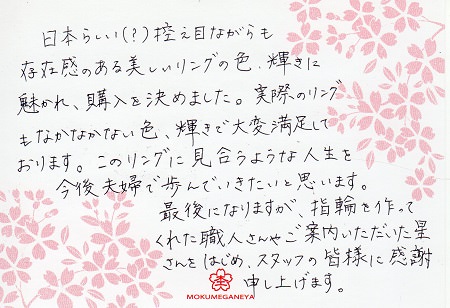 日本らしい(?)控え目ながらも
存在感のある美しいリングの色、輝きに
魅かれ、購入を決めました。実際のリング
もなかなかない色、輝きで大変満足して
おります。このリングに見合うような人生を
今後夫婦で歩んでいきたいと思います。
最後になりますが、指輪を作って
くれた職人さんやご案内いただいた星
さんをはじめ、スタッフの皆様に感謝
申し上げます。
MOKUMEGANEYA